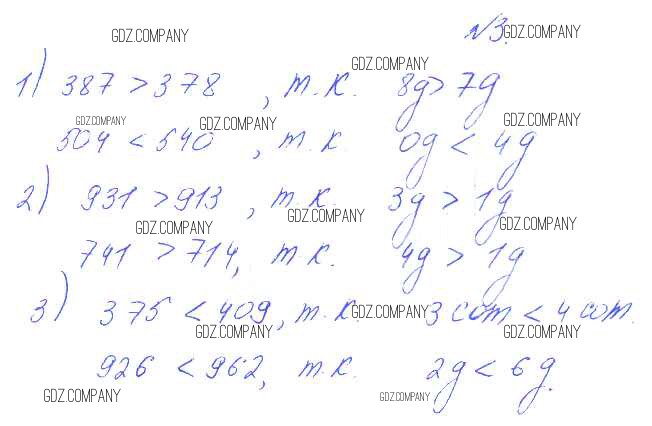 GDZ.COMPANY №3. GDZ.COMPANY
GDZ.COMPANY
1) 387 > 378, т.к. 8д > 7д
GDZ.COMPANY GDZ.COMPANY GDZ.COMPANY
504 < 540, т.к. 0д < 4д
2) 931 > 913, т.к. 3д > 1д
GDZ.COMPANY GDZ.COMPANY GDZ.COMPANY
741 > 714, т.к. 4д > 1д
3) 375 < 409, т.к. 3 сот < 4 сот.
GDZ.COMPANY
GDZ.COMPANY GDZ.COMPANY
926 < 962, т.к. 2д < 6д.
GDZ.COMPANY GDZ.COMPANY